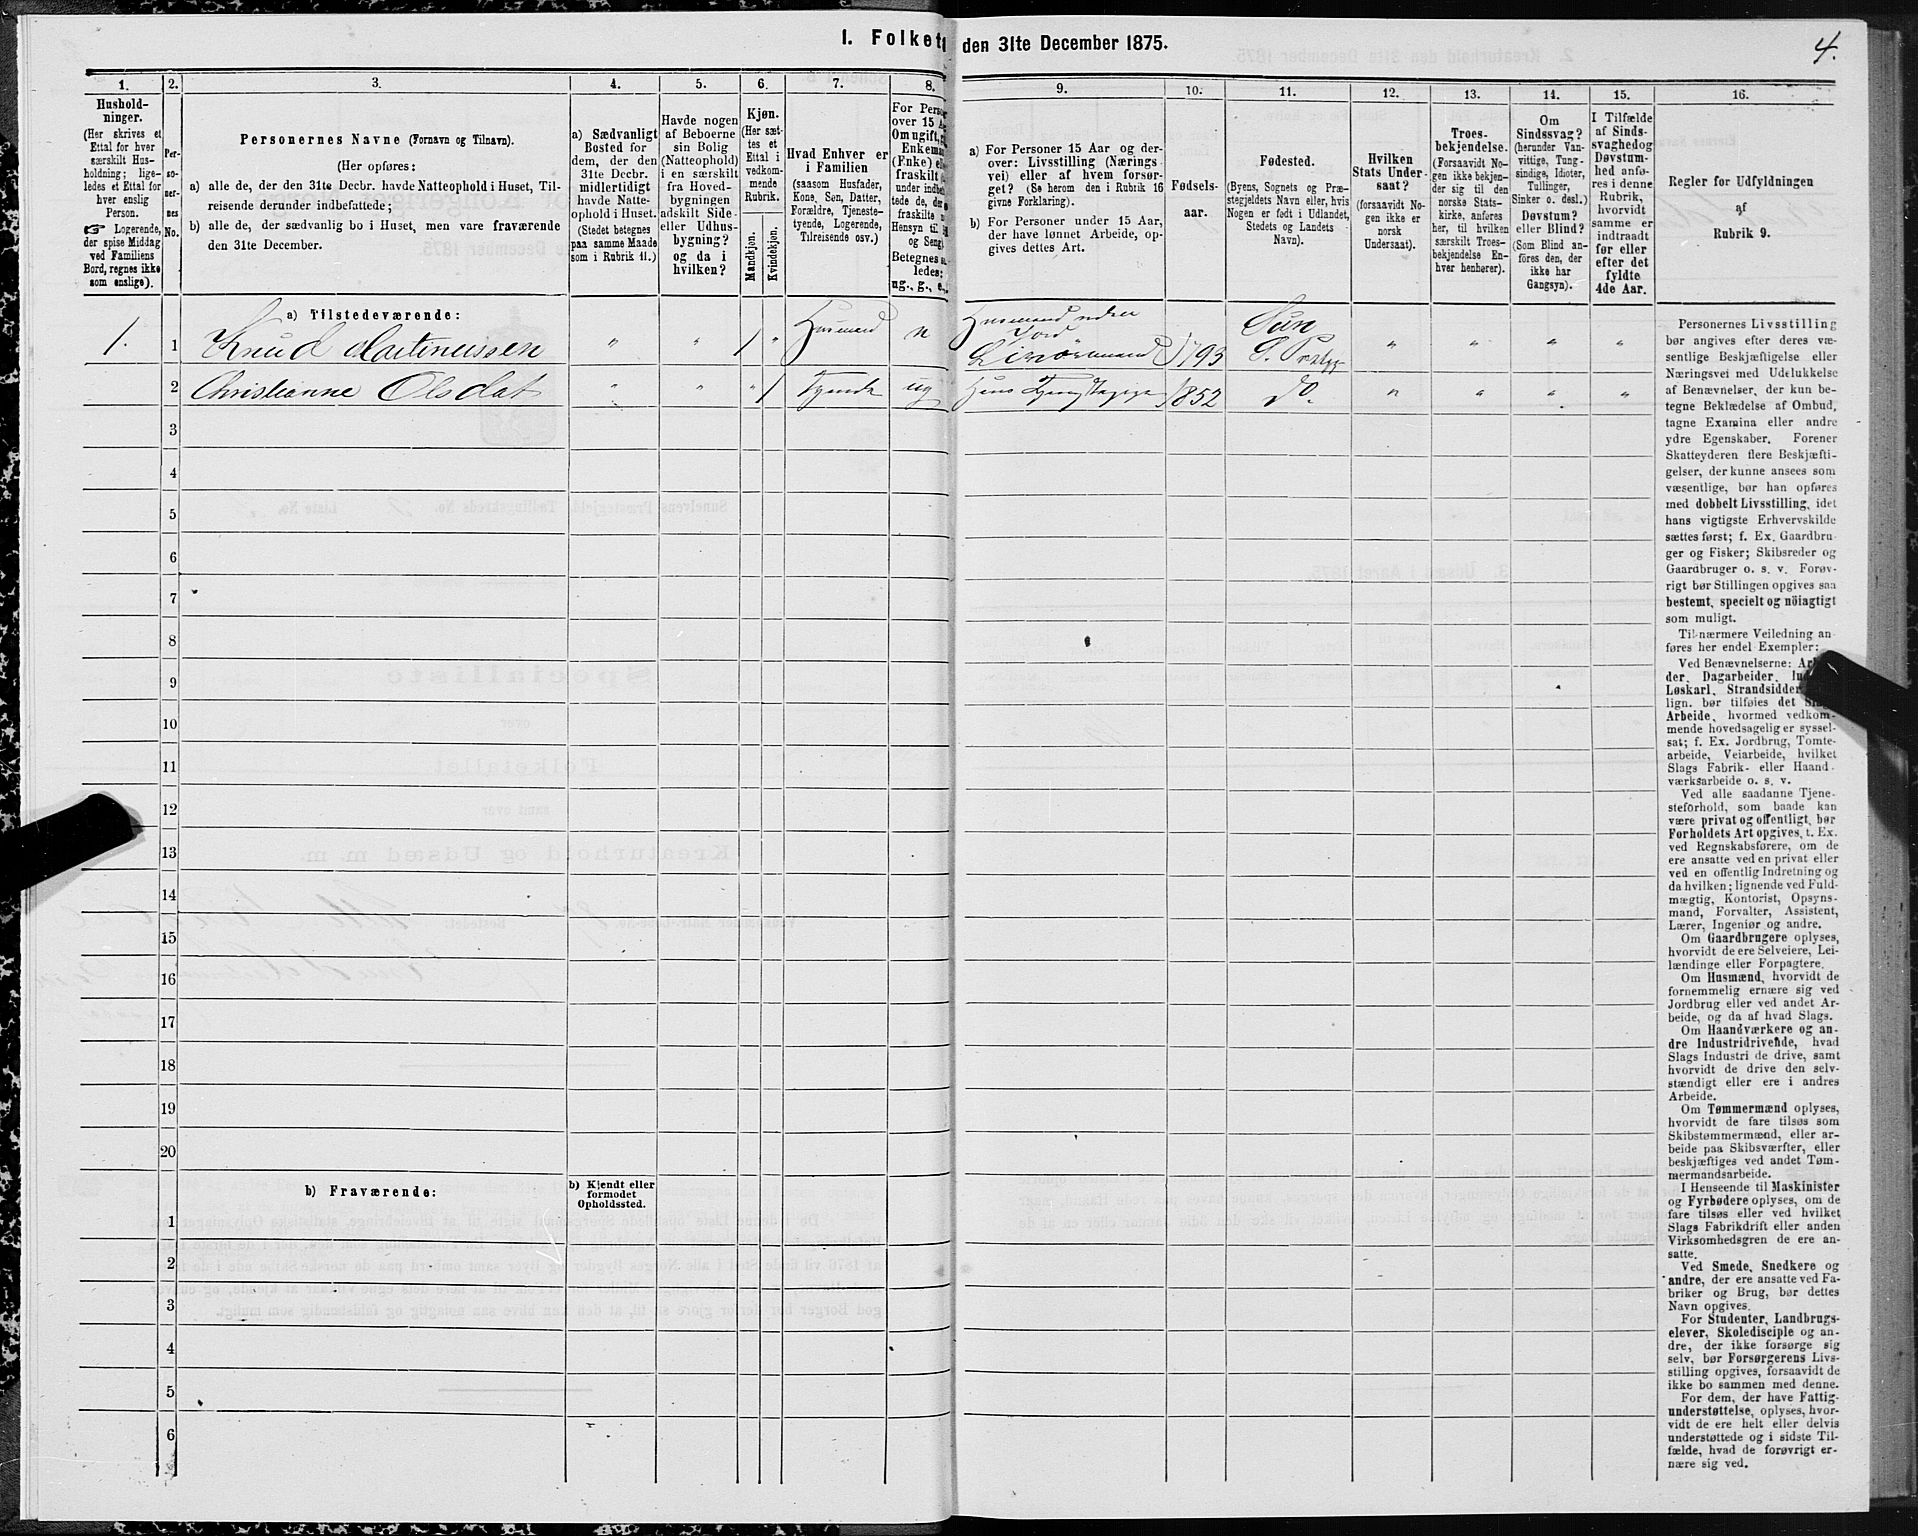 I. Folket den 31te December 1875.
4.
1.
Hushold-
ninger.
(Her skrives et
Ettal for hver
særskilt Hus-
holdning; lige-
ledes et Ettal for
hver enslig
Person.
☞ Logerende,
der spise Middag
ved Familiens
Bord, regnes ikke
som enslige).
2.
Per-
so-
ner-
nes
No.
3.
Personernes Navne (Fornavn og Tilnavn).
(Her opføres:
a) alle de, der den 31te Decbr. havde Natteophold i Huset, Til-
reisende derunder indbefattede;
b) alle de, der sædvanlig bo i Huset, men vare fraværende
den 31te December.
4.
a) Sædvanligt
Bosted for
dem, der den
31te Decbr.
midlertidigt
havde Natte-
ophold i Huset.
(Stedet betegnes
paa samme Maade
som i Rubrik 11.)
5.
Havde nogen
af Beboerne
sin Bolig
(Natteophold)
i en særskilt
fra Hoved-
bygningen
adskilt Side-
eller Udhus-
bygning?
og da i
hvilken?
6.
Kjøn.
(Her sæt-
tes et
Ettal i
vedkom-
mende
Rubrik.
Mandkjøn.
Kvindekjøn.
7.
Hvad Enhver er
i Familien
(saasom Husfader,
Kone, Søn, Datter,
Forældre, Tjeneste-
tyende, Logerende,
Tilreisende osv.)
8.
For Perso
over 15 A
Om ugift, g
Enkema
(Enke) el
fraskilt
under indbe
tede de, de
fraskilte
Hensyn til
og Seng
Betegnes s
ledes:
ug., g., e.,
9.
a) For Personer 15 Aar og der-
over: Livsstilling (Nærings
vei) eller af hvem forsør-
get? (Se herom den i Rubrik 16
givne Forklaring).
b) For Personer under 15 Aar,
der have lønnet Arbeide, op-
gives dettes Art.
10.
Fødsels-
aar.
11.
Fødested.
(Byens, Sognets og Præ-
stegjeldets Navn eller, hvis
Nogen er født i Udlandet,
Stedets og Landets
Navn).
12.
Hvilken
Stats Under-
saat?
(forsaavidt No-
gen ikke er
norsk
Undersaat).
13.
Troes-
bekjendelse.
(Forsaavidt No-
gen ikke bekjen-
der sig til den
norske Stats-
kirke, anføres
her, til hvilken
særskilt Troes-
bekjendelse En-
hver henhører).
14.
Om
Sindssvag?
(herunder Van-
vittige, Tung-
sindige, Idioter,
Tullinger,
Sinker o. desl.)
Døvstum?
eller Blind?
(Som Blind an-
føres den, der
ikke har
Gangsyn).
15.
I Tilfælde
af Sinds-
svaghed og
Døvstum-
hed anfø-
res i denne
Rubrik,
hvorvidt
samme er
indtraadt
før eller
efter det
fyldte
4de Aar.
16.
Regler for Udfyldningen
af
Rubrik 9.
a) Tilstedeværende:
1. 1 Knud Martinussen " " 1 " Husmand Husmand uden Jord 1793 Sun S. Prstgj " " " "
2 Christianne Olsdat " " " 1 Tyende ug Hans 1852 do. " " " "
3
4
5
6
7
8
9
10
11
12
13
14
15
16
17
18
19
20
b) Fraværende:
b) Kjendt eller
formodet
Opholdssted.
1
2
3
4
5
6
Personernes Livsstilling
bør angives efter deres væ-
sentlige Beskjæftigelse eller
Næringsvei med Udelukkelse
af Benævnelser, der kun be-
tegne Beklædelse af Ombud,
tagne Examina eller andre
ydre Egenskaber. Forener
Skatteyderen flere Beskjæfti-
gelser, der kunne ansees som
væsentlige, bør han opføres
med dobbelt Livsstilling, idet
hans vigtigste Erhvervskilde
sættes først; f. Ex. Gaardbru-
ger og Fisker; Skibsreder og
Gaardbruger o. s. v. Forøv-
rigt bør Stillingen opgives saa
bestemt, specielt og nöiagtigt
som muligt.
Til nærmere Veiledning an-
føres her endel Exempler:
Ved Benævnelserne: Ar
der, Dagarbeider, In
Løskarl, Strandsidder
lign. bør tilføies det Slag
Arbeide, hvormed vedkom-
mende hovedsagelig er syssel-
sat; f. Ex. Jordbrug, Tomte-
arbeide, Veiarbeide, hvilket
Slags Fabrik- eller Haand-
værksarbeide o. s. v.
Ved alle saadanne Tjene-
steforhold, som baade kan
være privat og offentligt, bør
Forholdets Art opgives, t. Ex.
ved Regnskabsførere, om de
ere ansatte ved en privat eller
ved en offentlig Indretning og
da hvilken; lignende ved Fuld-
mægtig, Kontorist, Opsyns-
mand, Forvalter, Assistent,
Lærer, Ingeniør og andre.
Om Gaardbrugere oplyses,
hvorvidt de ere Selveiere, Lei-
lændinge eller Forpagtere.
Om Husmænd, hvorvidt de
fornemmelig ernære sig ved
Jordbrug eller ved andet Ar-
beide, og da af hvad Slags.
Om Haandværkere og an-
dre Industridrivende, hvad
Slags Industri de drive, samt
hvorvidt de drive den selv-
stændigt eller ere i andres
Arbeide.
Om Tømmermænd oplyses,
hvorvidt de fare tilsøs som
Skibstømmermænd, eller ar-
beide paa Skibsværfter, eller
beskjæftiges ved andet Tøm-
mermandsarbeide.
I Henseende til Maskinister
og Fyrbødere oplyses, om de
fare tilsøs eller ved hvilket
Slags Fabrikdrift eller anden
Virksomhedsgren de ere an-
satte.
Ved Smede, Snedkere og
andre, der ere ansatte ved Fa-
briker og Brug, bør dettes
Navn opgives.
For Studenter, Landbrugs-
elever, Skoledisciple og an-
dre, der ikke forsørge sig
selv, bør Forsørgerens Livs-
stilling opgives, forsaavidt de
ikke bo sammen med denne.
For dem, der have Fattig-
understøttelse, oplyses, hvor-
vidt de ere helt eller delvis
understøttede og i sidste Til-
fælde, hvad de forøvrigt er-
nære sig ved.